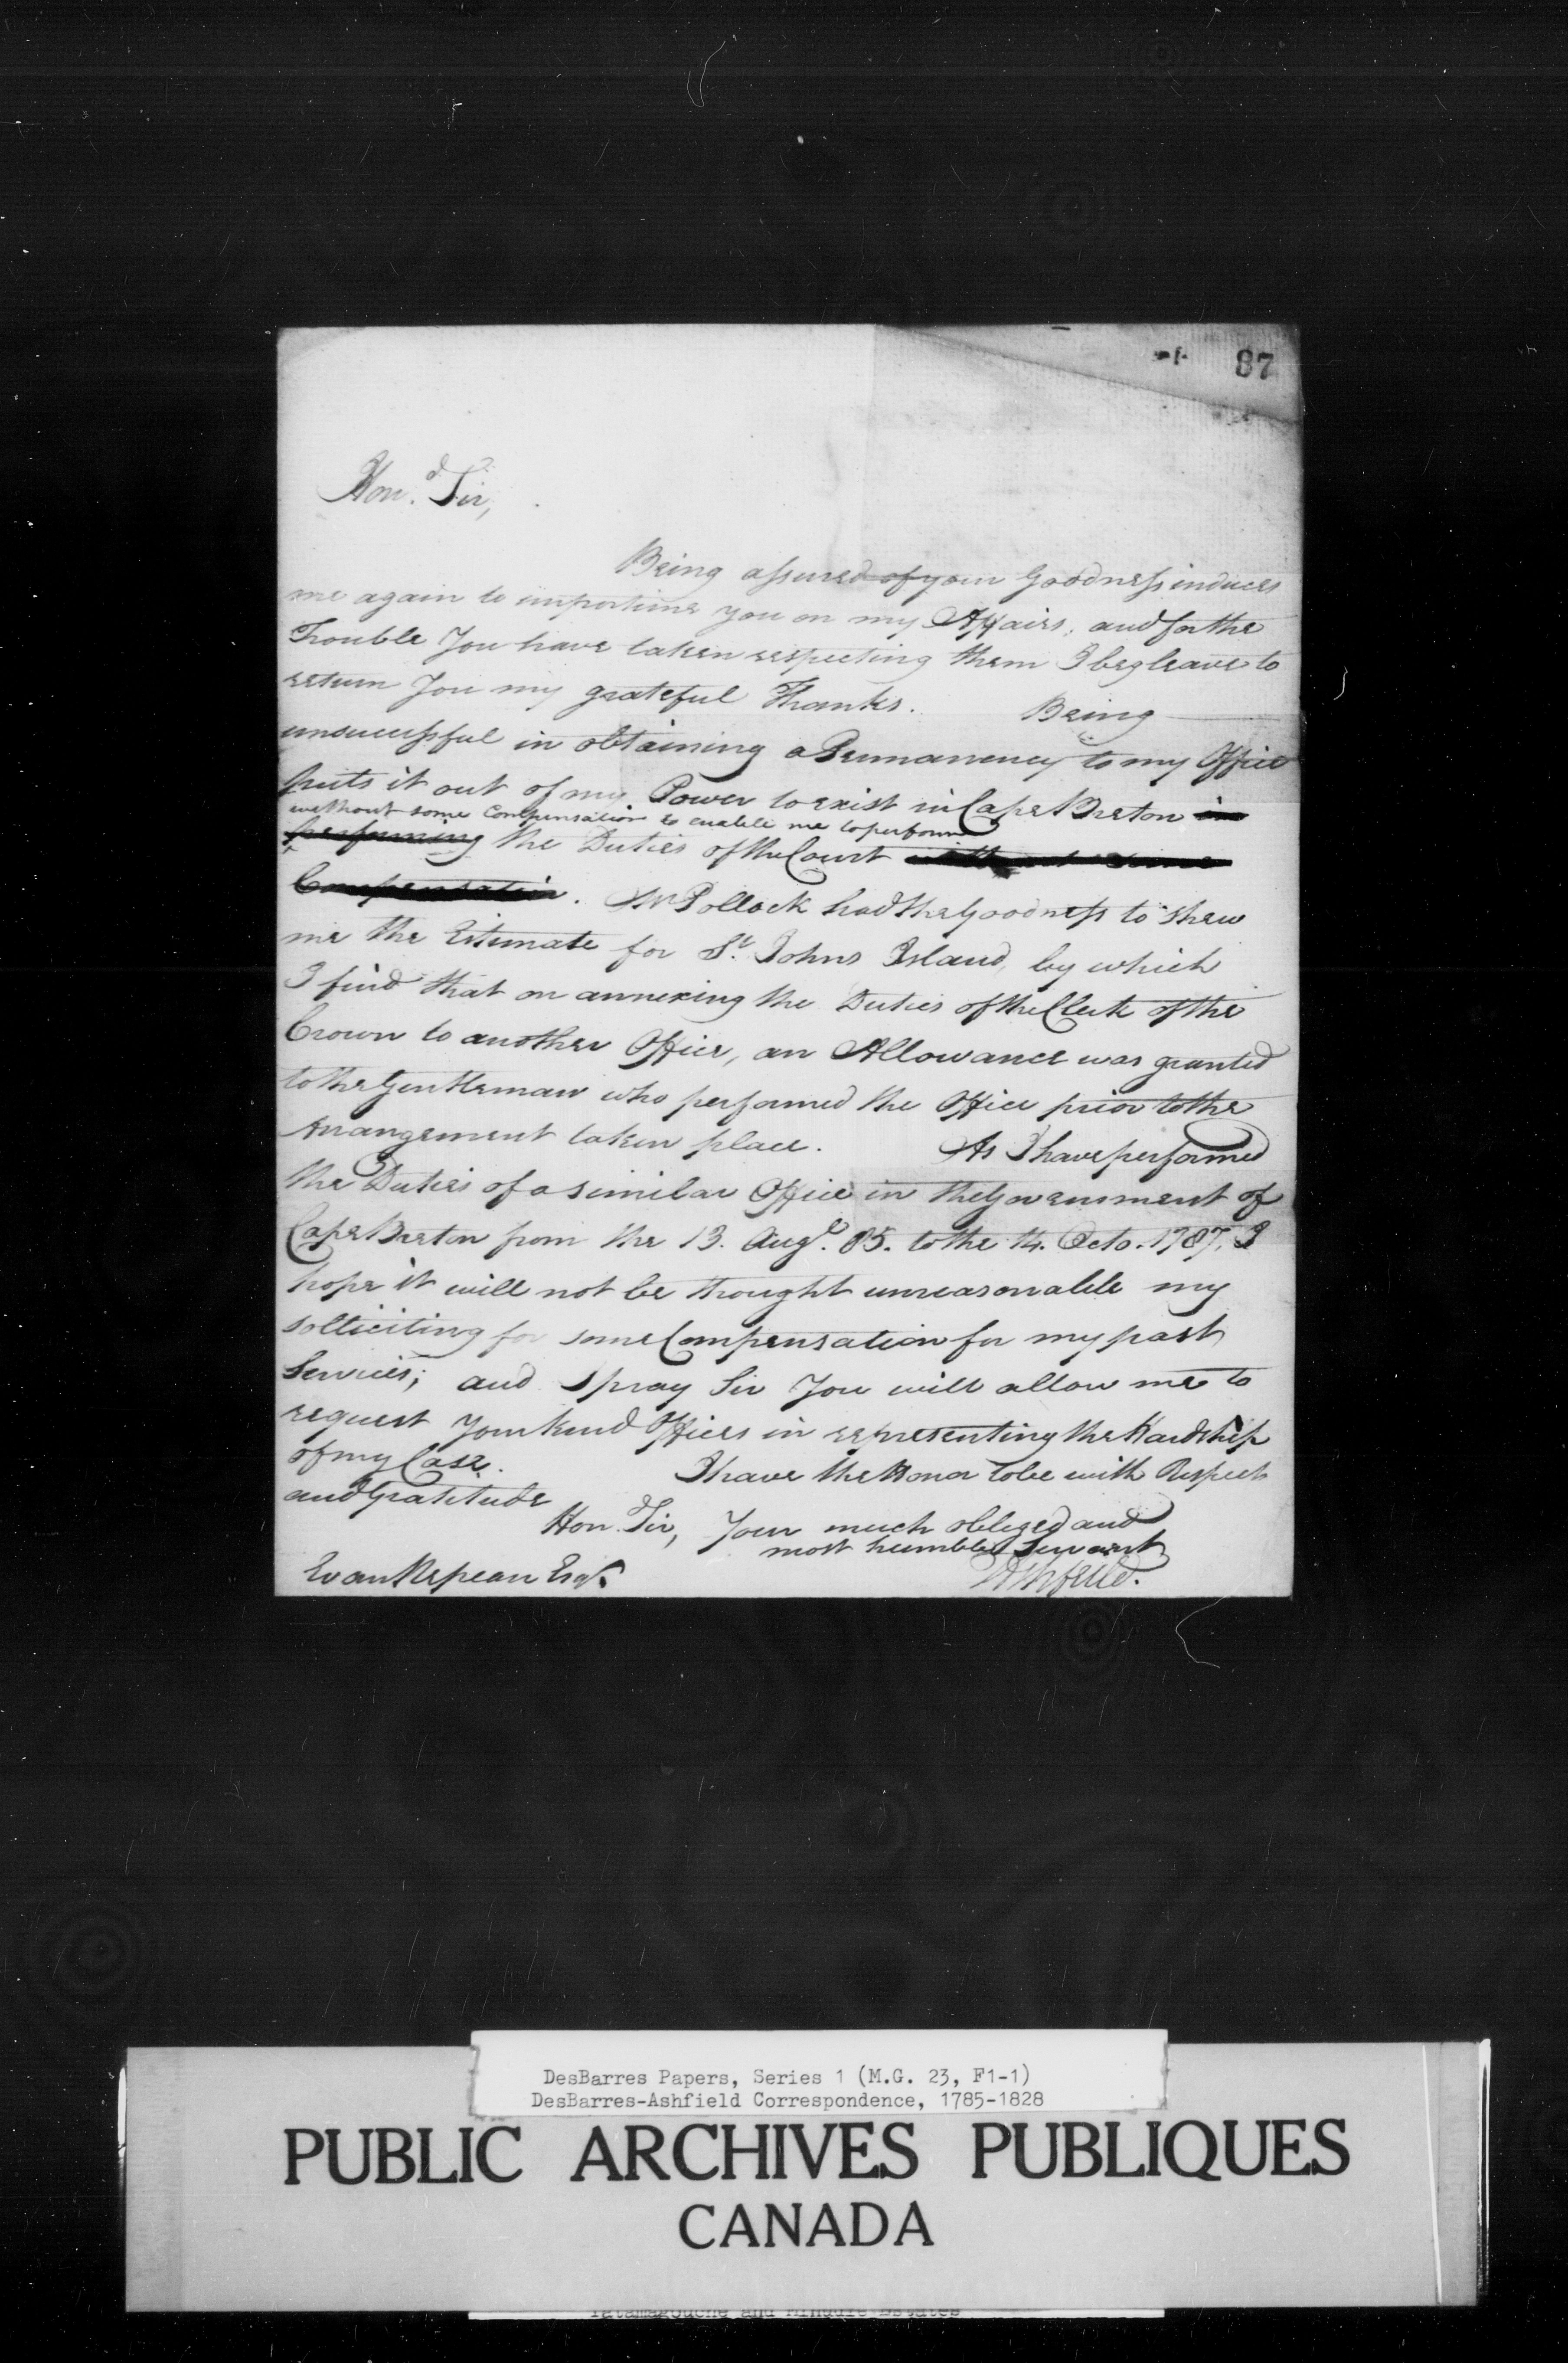 87
Hon.d Sir,
Being assured of your Goodness induces
me again to importune you on my Affairs, and for the
Trouble You have taken respecting them I beg leave to
return You my grateful Thanks. Being
unsuccessful in obtaining a Permanency to my Office
puts it out of my Power to exist in Cape Breton in
without some Compensation to enable me to perform
performing the Duties of the Court without some
Compensation. Mr Pollock had the Goodness to shew
me the Estimate for St. Johns Island, by which
I find that on annexing the Duties of the Clerk of the
Crown to another Office, an Allowance was granted
to the Gentleman who performed the Office prior to the
Arrangement taken place. As I have performed
the Duties of a similar Office in the Government of
Cape Breton from the 13. Augt. 85. to the 14. Octo. 1787. I
hope it will not be thought unreasonable my
solliciting for some Compensation for my past
Services; and I pray Sir You will allow me to
request your kind Offices in representing the Hardship
of my Case. I have the Honor to be with Respect
and Gratitude
Hon.d Sir, Your much obliged and
most humble Servant
Evan Nepean Esqr. Ashfield.
DesBarres Papers, Series 1 (M.G. 23, F1-1)
DesBarres-Ashfield Correspondence, 1785-1828
PUBLIC ARCHIVES PUBLIQUES
CANADA
Tatamagouche and Minudie Estates